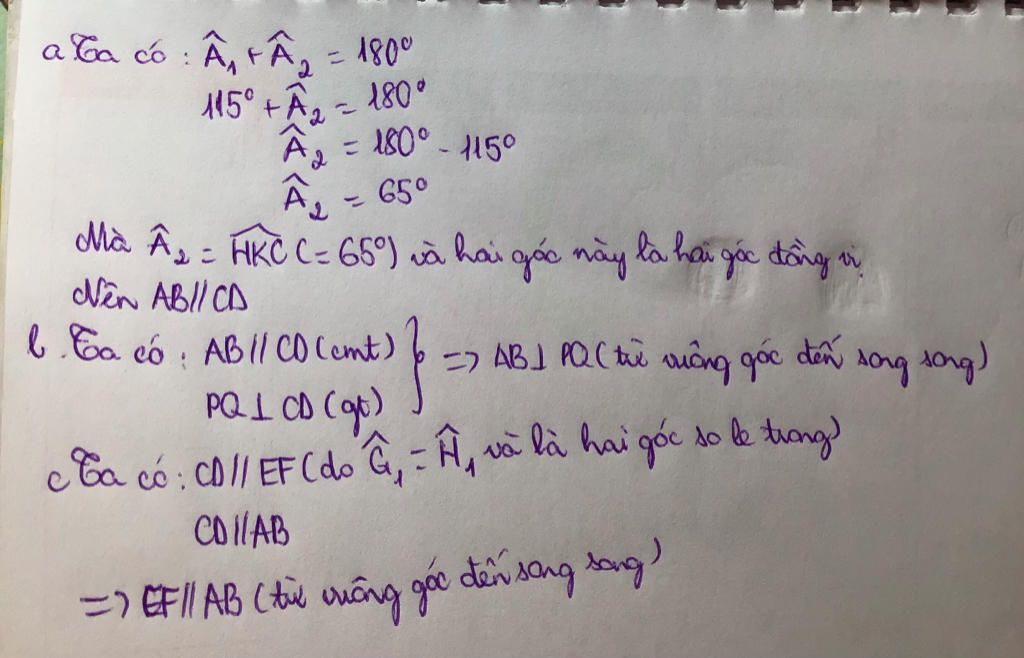 a Ta có : Â₁ + Â₂ = 180°
115° + Â₂ = 180°
Â₂ = 180° - 115°
Â₂ = 65°
Mà Â₂ = \widehat{HKC} (= 65°) và hai góc này là hai góc đồng vị
Nên AB // CD
b. Ta có : AB // CD (cmt) } => AB ⊥ PQ (từ vuông góc đến song song)
PQ ⊥ CD (gt)
c Ta có : CD // EF (do Ĝ₁ = Ĥ₁ và là hai góc so le trong)
CD // AB
=> EF // AB (từ vuông góc đến song song)